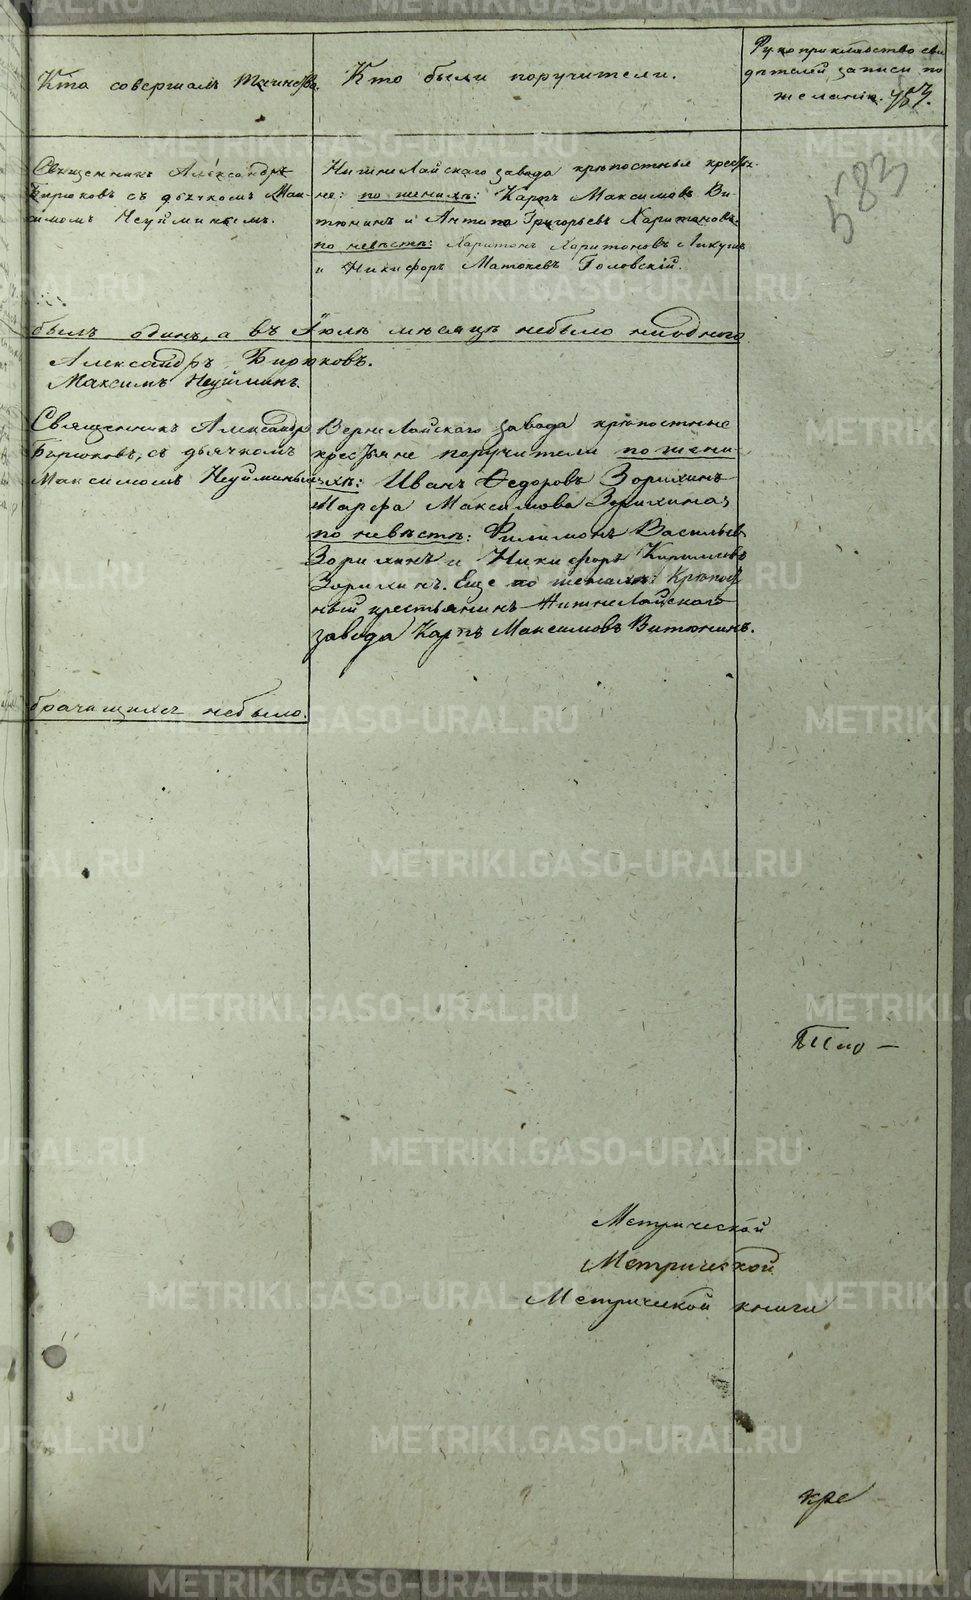 Кто совершалъ таинство.
Кто были поручители.
Рукоприкладство сви
дѣтелей записи по
желанію. 457.
583
Священникъ Александръ
Бирюковъ съ дьячкомъ Мак
симомъ Неуйминымъ.
Нижне Лайскаго завода крѣпостные крестья-
не: по женихѣ: Карпъ Максимовъ Ви
тюнинъ и Антипа Григорьевъ Харитоновъ.
по невѣстѣ: Харитонъ Харитоновъ
и Никифоръ Головскій.
былъ одинъ, а въ Іюлѣ мѣсяцѣ небыло ниоднаго
Александръ Бирюковъ.
Максимъ Неуйминъ
Священникъ Александръ
Бирюковъ, съ дьячкомъ
Максимомъ Неуйминымъ
Верхне Лайскаго завода крѣпостные
крестьяне поручители по жени
хѣ: Иванъ Ѳедоровъ Зорихинъ
Марфа Максимова Зорихина;
по невѣстѣ: Филимонъ Васильевъ
Зорихинъ и Никифоръ Кириловъ
Зорихинъ. Еще по женихѣ Крѣпост
ный крестьянинъ Нижне Лайскаго
завода Карпъ Максимовъ Витюнинъ.
брачащихся небыло.
Метрической
Метрической
Метрической книги
кре
METRIKI.GASO-URAL.RU